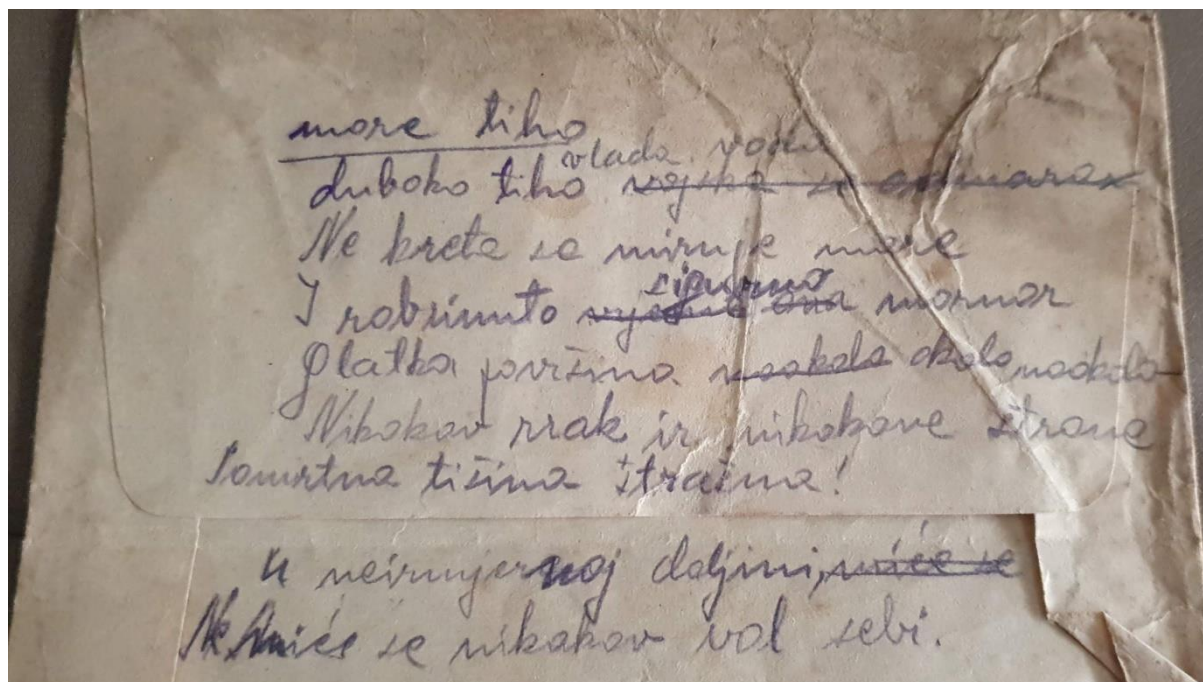 more tiho
duboko tiho vlada voda
Ne kreta se miruje more
I zabrinuto sigurno mornar
Glatka površina okolo naokolo
Nikakov zrak iz nikakove strane
Pomrtna tišina štrašna!
U neizmjernoj daljini, miće se
Ne miće se nikakov val sebi.